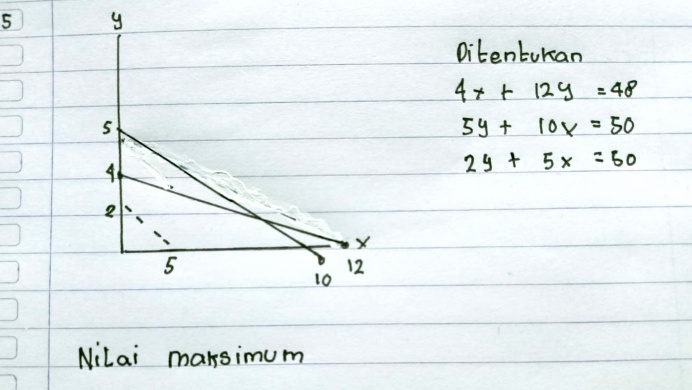 5
y
5
4
2
5
10
12
x
Ditentukan
4x + 12y = 48
5y + 10x = 50
2y + 5x = 50
Nilai maksimum